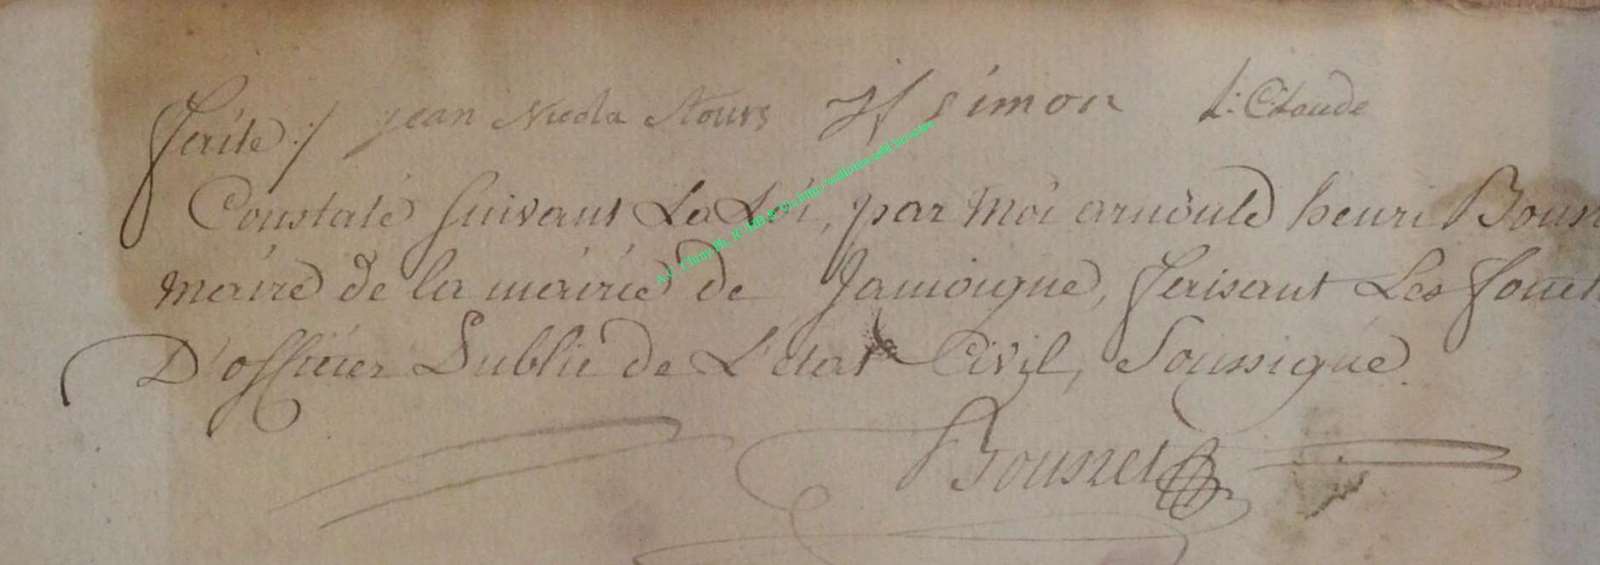 ferite :/ jean Nicola Stours JJ simon h: Claude
Constaté suivant La Loi, par Moi arnould henri Bonn
maire de la mairie de Jamoigne, faisant Les fonct
D'officier Public de L'état Civil, Soussigné
Bonnet